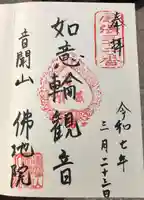 奉拝
令和七年
三月二十三日
如意輪観音
音開山
佛地院